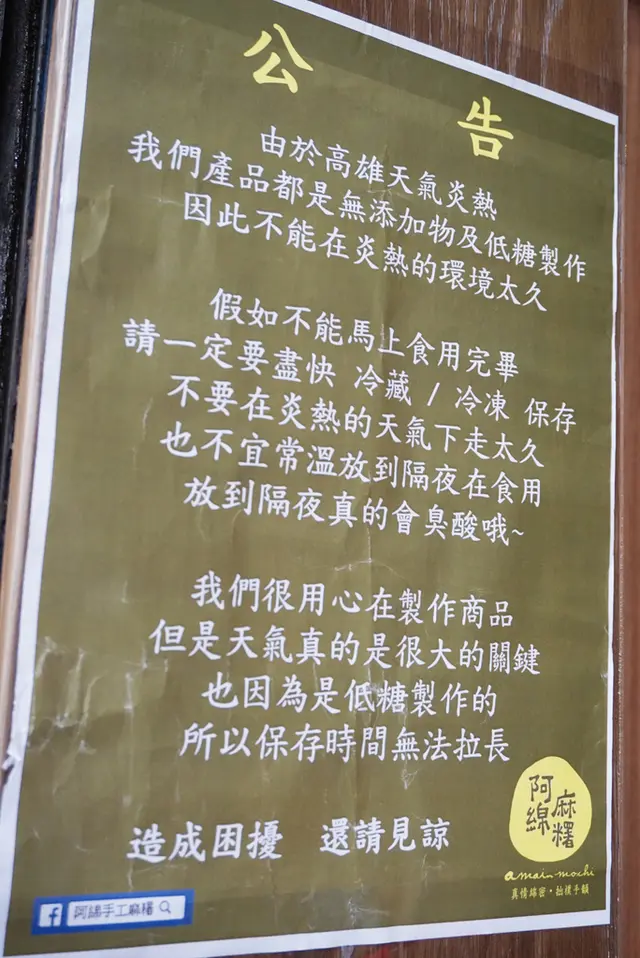 公告
由於高雄天氣炎熱
我們產品都是無添加物及低糖製作
因此不能在炎熱的環境太久
假如不能馬上食用完畢
請一定要盡快 冷藏 / 冷凍 保存
不要在炎熱的天氣下走太久
也不宜常溫放到隔夜在食用
放到隔夜真的會臭酸哦~
我們很用心在製作商品
但是天氣真的是很大的關鍵
也因為是低糖製作的
所以保存時間無法拉長
造成困擾 還請見諒
阿綿麻糬
amai mochi
真情綿密·拙樸手韻
f 阿綿手工麻糬